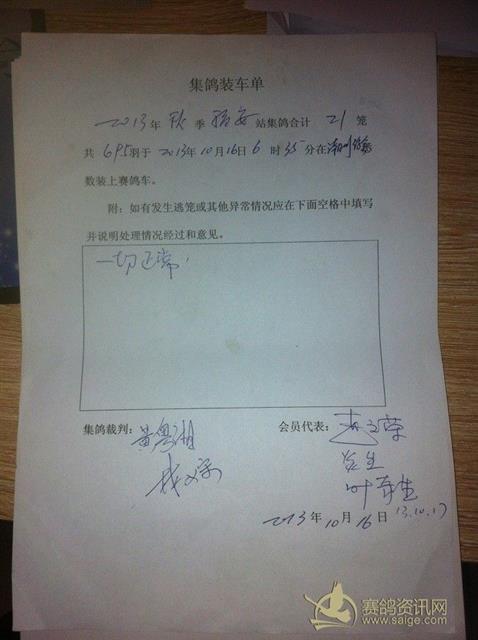 集鸽装车单
2013年 秋 季 站集鸽合计 21 笼
共 695羽于 2013年10月16日6 时35分在潮州
数装上赛鸽车。
附：如有发生逃笼或其他异常情况应在下面空格中填写
并说明处理情况经过和意见。
一切正常，
集鸽裁判： 黄粤湘 会员代表：
2013年10月16日 13.10.17
赛鸽资讯网
www.saige.com